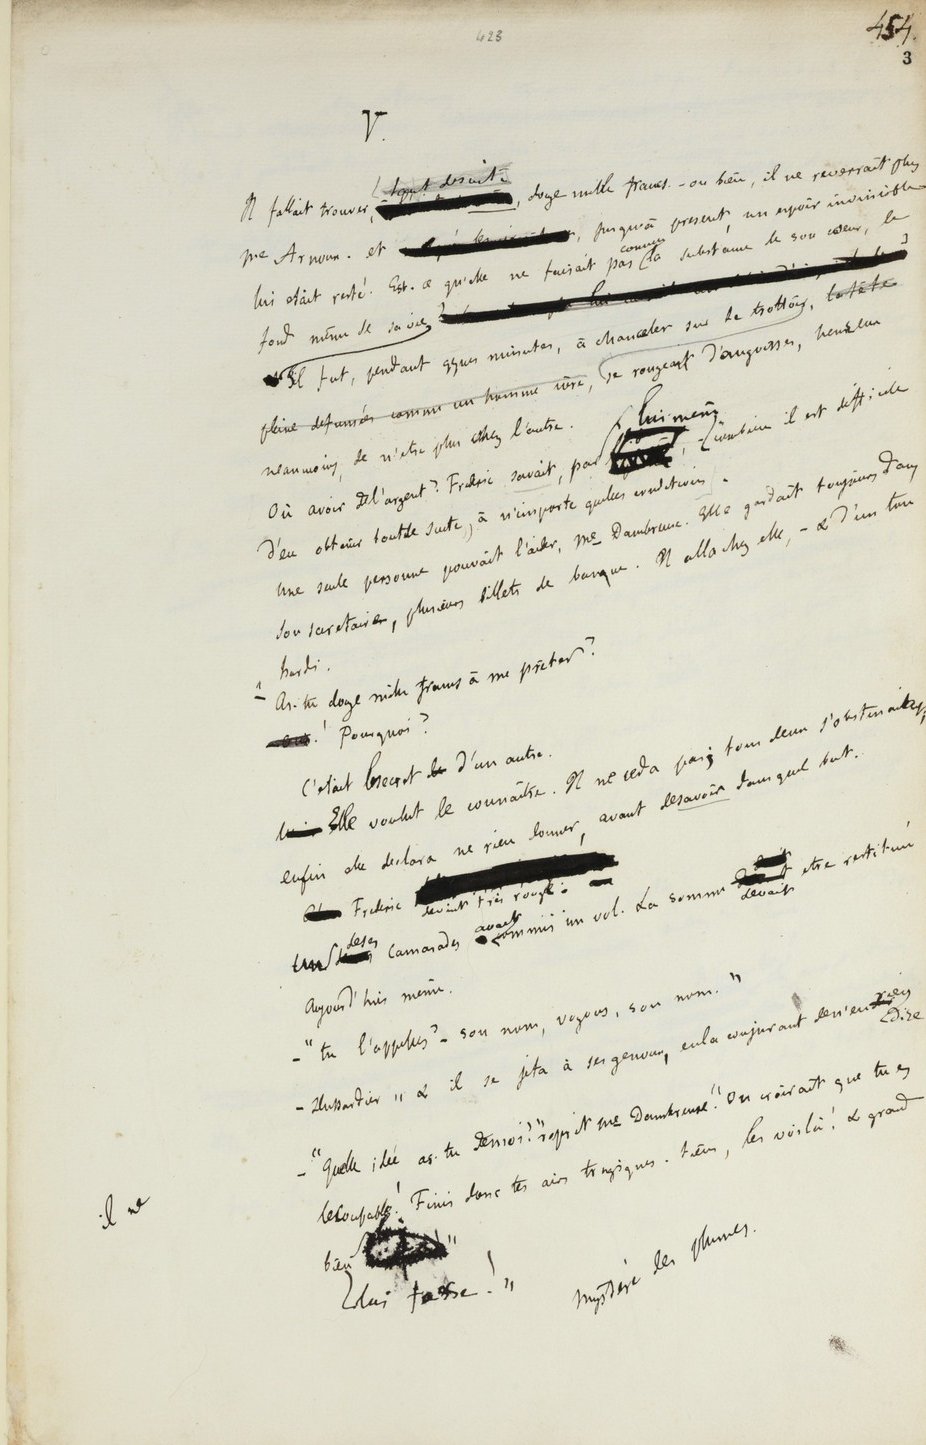 423
454
3
V.
tout de suite
Il fallait trouver, douze mille francs. - ou bien, il ne reverrait plus
me Arnoux. et jusqu'à présent, un espoir invincible
lui était resté. Est-ce qu'elle ne faisait pas comme la substance de son cœur, le
fond même de sa vie?
Il fut, pendant qques minutes, à chanceler sur le trottoir, la tête
pleine de pensées comme un homme ivre, se rongeant d'angoisses, heureux
néanmoins de n'être plus chez l'autre.
lui même
Où avoir de l'argent? Frédéric savait, par combien il est difficile
d'en obtenir tout de suite, à n'importe quelles conditions.
Une seule personne pouvait l'aider, me Dambreuse. Elle gardait toujours dans
son secrétaire, plusieurs billets de banque. Il alla chez elle, - & d'un ton
hardi.
- As-tu douze mille francs à me prêter?
! Pourquoi?
C'était le secret d'un autre.
Elle voulut le connaître. Il ne céda pas; tous deux s'obstinaient;
enfin elle déclara ne rien donner, avant de savoir dans quel but.
Frédéric devint très rouge.
un de ses camarades avait commis un vol. La somme devait être restituée
Aujourd'hui même.
- "tu l'appelles? - son nom, voyons, son nom."
- Dussardier" & il se jeta à ses genoux, en la conjurant de n'en rien
dire
- "Quelle idée as-tu de moi?" reprit me Dambreuse. "On croirait que tu es
le coupable! Finis donc tes airs tragiques. tiens, les voilà! & grand
bien
lui fasse!"
il ne
mystère des plumes.